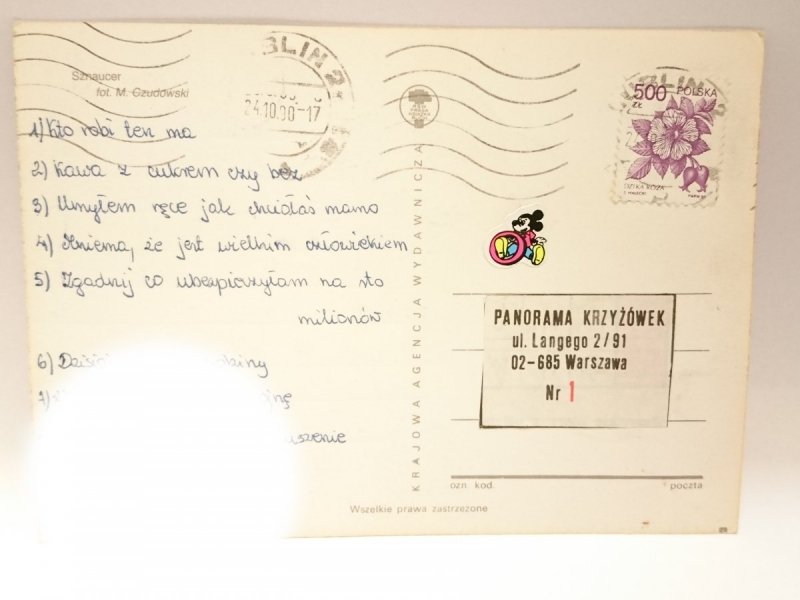 Sznaucer
fot. M. Czudowski
LUBLIN 2
24.10.90-17
500 ZŁ POLSKA
DZIKA RÓŻA
1) Kto robi ten ma
2) Kawa z cukrem czy bez
3) Umyłem ręce jak chciałaś mamo
4) Mniema, że jest wielkim człowiekiem
5) Zgadnij co ubezpieczyłam na sto
milionów
6)
7)
KRAJOWA AGENCJA WYDAWNICZA
PANORAMA KRZYŻÓWEK
ul. Langego 2/91
02-685 Warszawa
Nr 1
ozn. kod.
poczta
Wszelkie prawa zastrzeżone